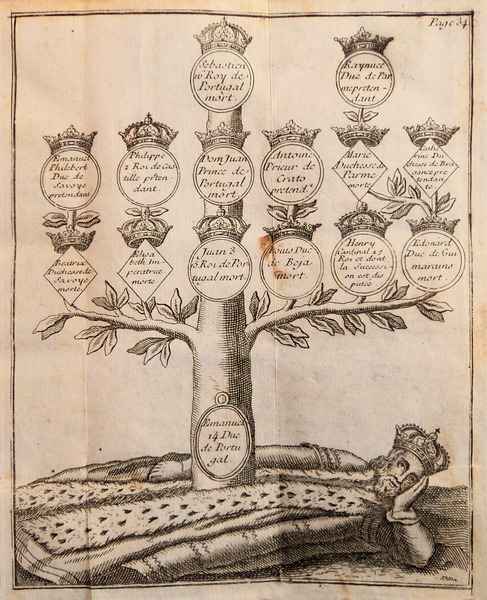 Page 34
Sebastien
16 Roy de
Portugal
mort.
Raynuce
Duc de Par
me preten-
dant
Emanuel
Philibert
Duc de
Savoye
pretendant
Philippe
2 Roi de Cas
tille prten-
dant.
Dom Juan
Prince de
Portugal
mort
Antoine
Prieur de
Crato
pretend.
Marie
Duchesse de
Parme
morte
Cathe
rine Du
chesse de Bra
gance pre
tendan
te
Beatrix
Duchesse de
Savoye
morte
Elisa
beth Im
peratrice
morte
Juan 3
15 Roi de Por
tugal mort.
Louis Duc
de Beja
mort.
Henry
Cardinal 17
Roi et dont
la Successi
on est dis
putée
Edouard
Duc de Gui
marains
mort.
Emanuel
14 Duc
de Portu
gal.